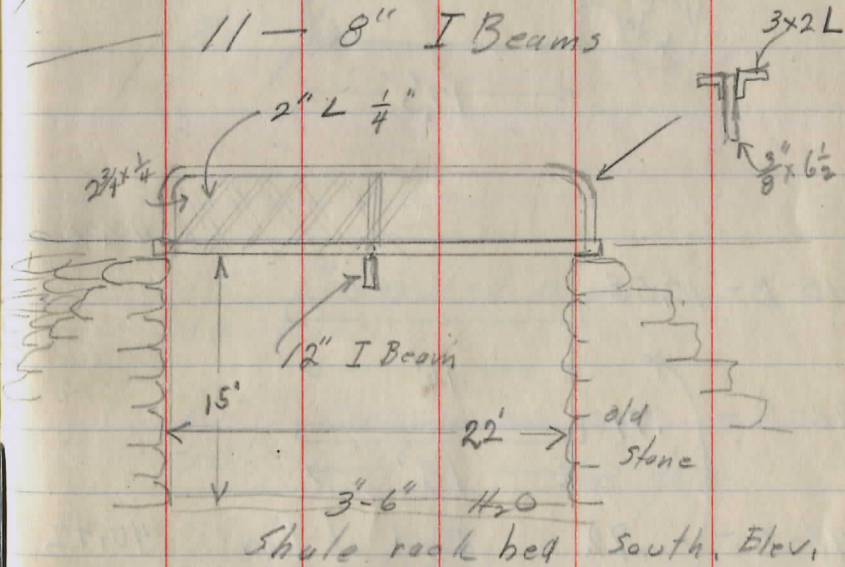 11 — 8" I Beams
3x2 L
2" L 1/4"
2 3/4 x 1/4
3/8" x 6 1/2
12" I Beam
15'
22'
old
stone
3"-6" H2O
Shale rock bed South. Elev.